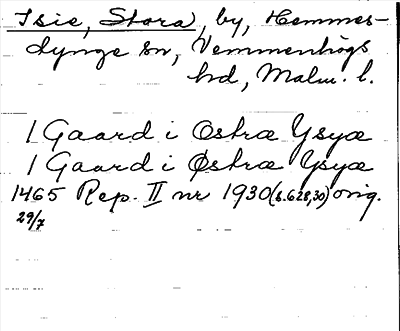 Isie, Stora, by, Hemmes-
dynge sn, Vemmenhögs
hd, Malm. l.
1 Gaard i Ostræ Ysyæ
1 Gaard i Østræ Ysyæ
1465 Rep. II nr 1930 (s. 628,30) orig.
29/7